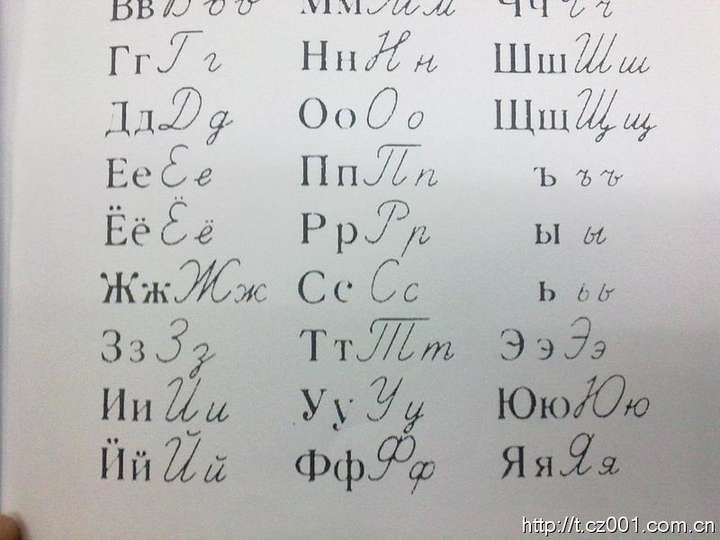 Вв Вв в Мм Мм Чч Чч
Гг Гг Нн Нн Шш Шш
Дд Дд Оо Оо Щщ Щщ
Ее Ее Пп Пп ъ ъъ
Ёё Ёё Рр Рр ы ы
Жж Жж Сс Сс ь ьь
Зз Зз Тт Тт Ээ Ээ
Ии Ии Уу Уу Юю Юю
Йй Йй Фф Фф Яя Яя
http://t.cz001.com.cn